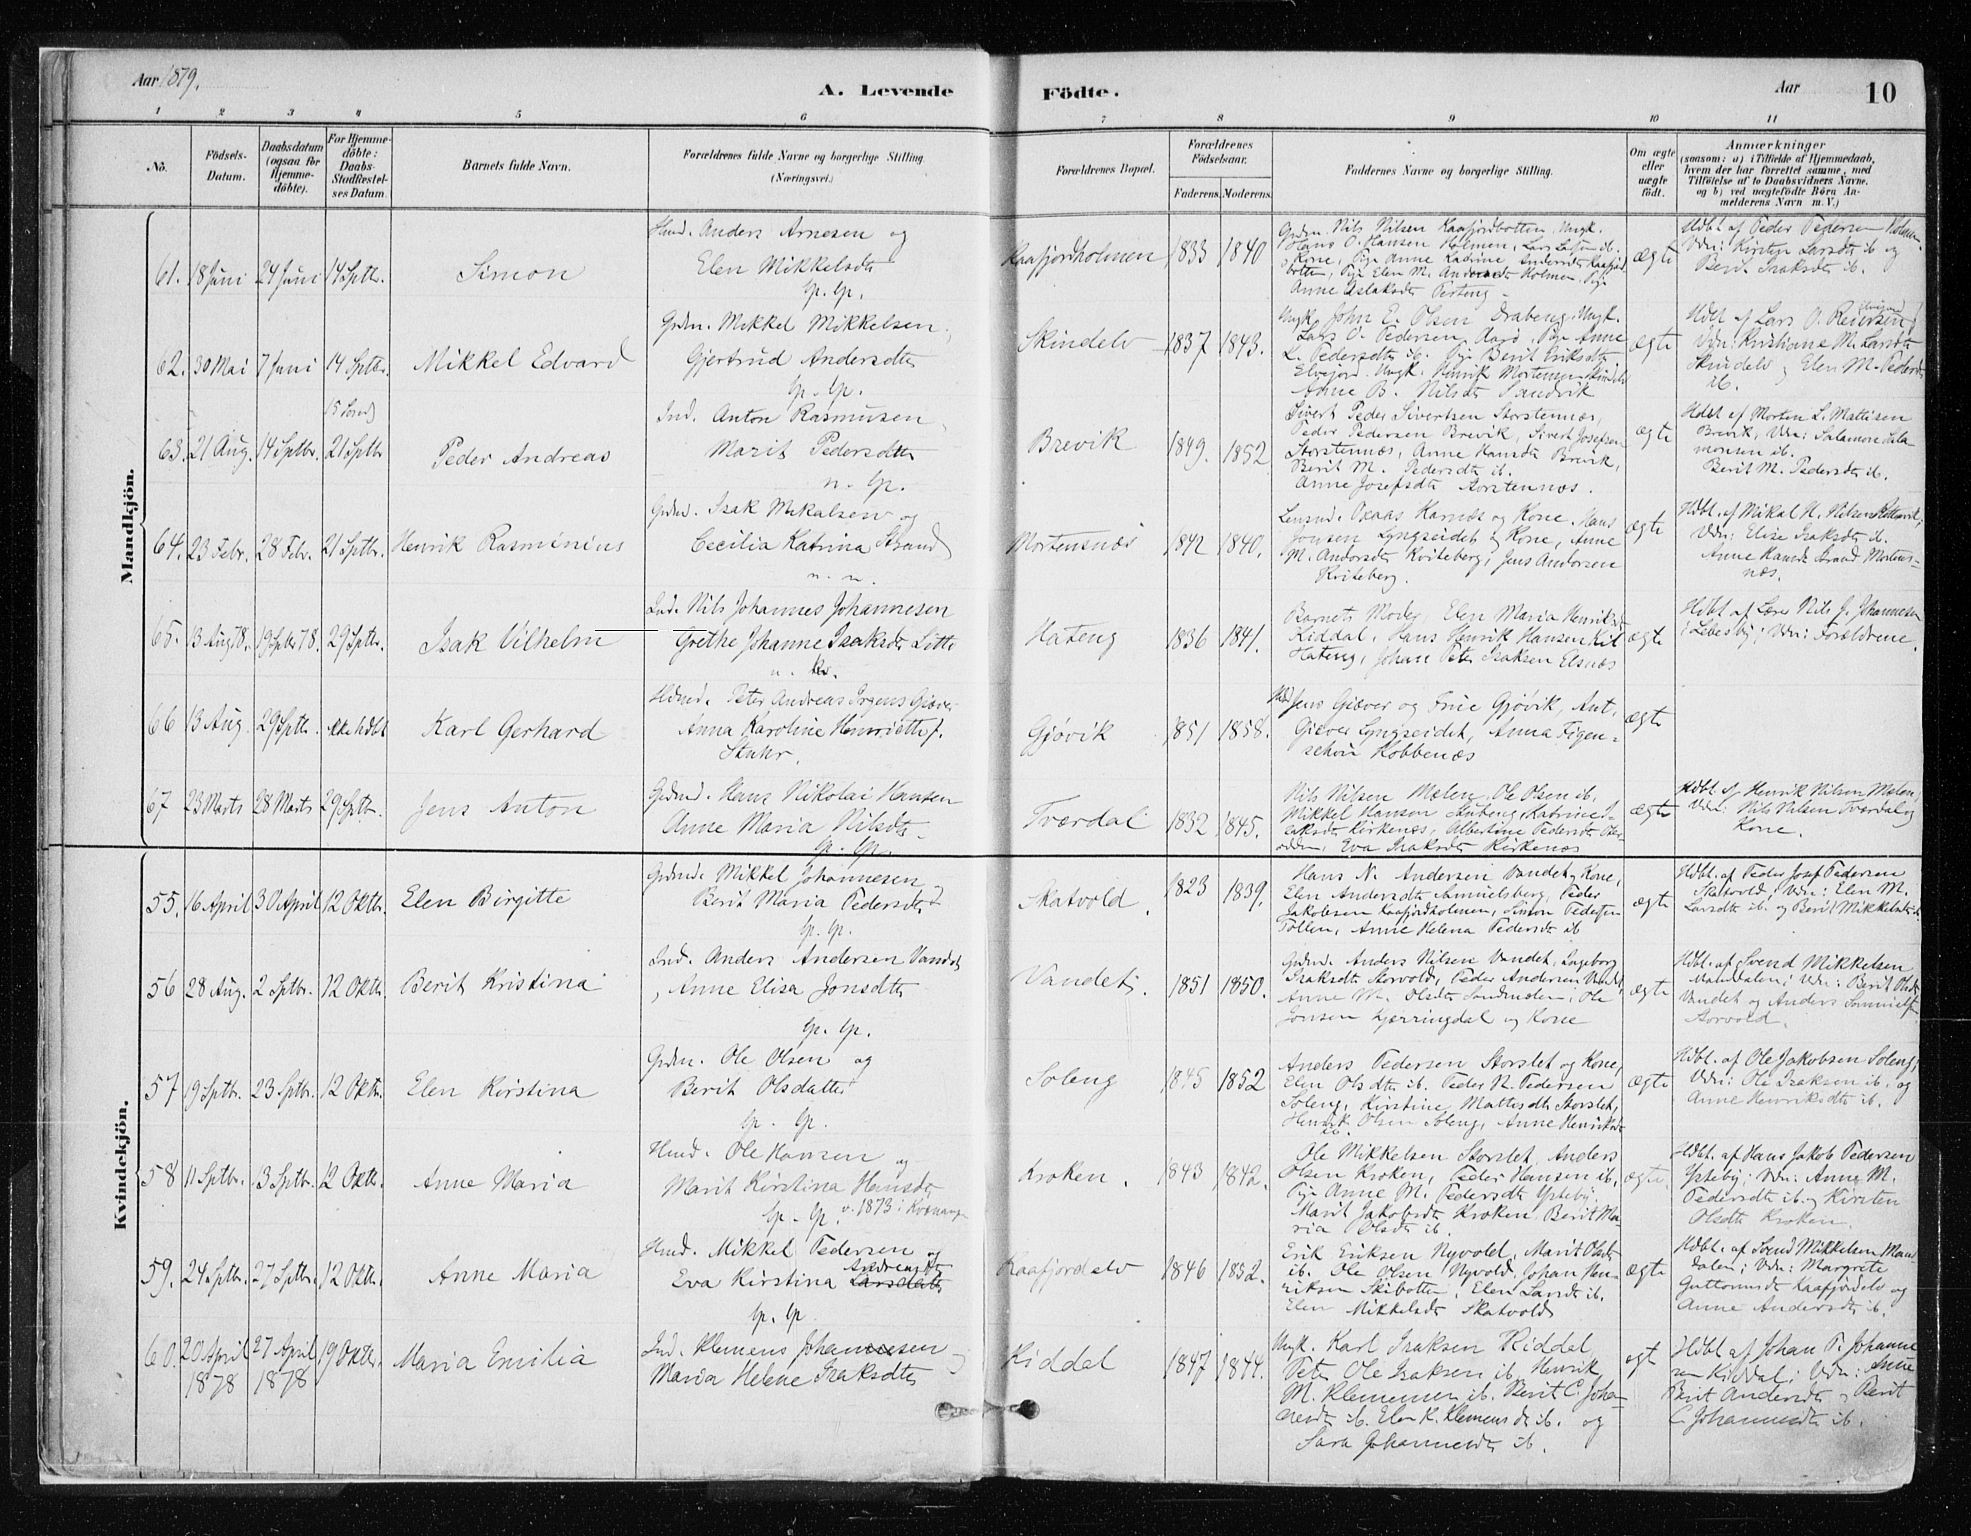 Aar 1879.
A. Levende Födte.
Aar
10
1 2 3 4 5 6 7 8 9 10 11
No.
Födsels-Datum.
Daabsdatum (ogsaa for Hjemme-döbte).
For Hjemme-döbte: Daabs-Stadfæstel-ses Datum.
Barnets fulde Navn.
Forældrenes fulde Navne og borgerlige Stilling.
(Næringsvei.)
Forældrenes Bopæl.
Forældrenes Födselsaar.
Faderens. Moderens.
Faddernes Navne og borgerlige Stilling.
Om ægte eller uægte födt.
Anmærkninger
(saasom: a) i Tilfælde af Hjemmedaab,
hvem der har forrettet samme, med
Tilföielse af to Daabsvidners Navne.
og b) ved uægtefödte Börn An-
melderens Navn m. V.)
Mandkjön.
61. 18 Juni 24 Juni 14 Sptbr. Simon
Hmd. Anders Arnesen og
Elen Mikkelsdtr
Kaafjordholmen 1833 1840
Nils Nilsen Kaafjordbotten, Ungk.
Hans O. Hansen Holmen, Lars Larsen ib.
Kone, Pige Anne Katrine Andersdtr Kaafjord
botten, Pige Elen M. Andersdtr Holmen, Pige
Anne Aslaksdtr
ægte
Hdbt af Peder Pedersen Holmen
Vdn: Kirsten Larsdtr ib og
Berit Isaksdtr ib.
62. 30 Mai 7 Juni 14 Sptbr. Mikkel Edvard
Grdm. Mikkel Mikkelsen,
Gjertrud Andersdtr
Skindelv 1837 1843.
Ungk. John E. Olsen Drabeng, Ungk.
Lars O. Pedersen Aarö, Pige Anne
L. Pedersdtr ib. Pige Berit Eriksdtr
Elvejord. Ungk. Henrik Mortensen Skindelv
Anne B. Nilsdtr Sandvik
ægte
Hdbt af Lars O. Reiersen
Vdn: Kristiane M. Larsdtr
Skindelv og Elen M. Pedersdtr
ib.
63. 21 Aug. 14 Sptbr. 21 Sptbr Peder Andreas
Ind. Anton Rasmusen,
Marit Pedersdtr
Brevik 1849. 1852
Sivert Peder Sivertsen Storstennæs,
Peder Pedersen Brevik, Sivert Josefsen
Storstennæs, Anne Hansdtr Brevik,
Berit M. Pedersdtr ib.
Anne Josefsdtr Storstennæs.
ægte
Hdbt af Morten L. Mattisen
Brevik, Vdn: Salamon Sala
monsen ib.
Berit M. Pedersdtr ib.
64. 23 Febr. 28 Febr. 21 Sptbr. Henrik Rasmínius
Grdmd. Isak Mikalsen og
Cecilia Katrina Strand
Mortensnæs 1842 1840.
Karnæs og Kone, Hans
Jonsen Lyngseidet og Kone, Anne
M. Andersdtr Kviteberg, Jens Andersen
Kviteberg.
ægte
Hdbt. af Mikal H. Nilsen
Vdn: Elise Isaksdtr ib.
Anne Hansdtr Strand Mortens-
næs.
65. 13 Aug 78. 19 Sptbr 78. 29 Sptbr. Isak Vilhelm
Ind. Nils Johannes Johannesen
Grethe Johanne Isaksdtr
Hateng 1836 1841.
Barnets Moder, Elen Maria Henriksdtr
Kiddal, Hans Henrik Hansen
Hateng, Johan Peter Isaksen Elsnæs
ægte
Hdbt af Lærer Nils J. Johannesen
i Lebesby; Vdn: Forældrene.
66 13 Aug 29 Sptbr. ikke hdbt Karl Gerhard
Peter Andreas Irgens Giæver
Anna Karoline Henriette f.
Stuhr.
Gjøvik 1851 1858.
Jens Giæver og Frue Gjøvik, Ant.
Giæver Lyngseidet, Anna Figen-
schou Kobbenæs
ægte
67 23 Marts 28 Marts 29 Sptbr. Jens Anton
Grdmd. Hans Nikolai Hansen
Anne Maria Nilsdtr.
Tværdal 1832 1845.
Nils Nilsen Mælen, Ole Olsen ib.
Mikkel Hansen Katrine I-
saksdtr Kirkenæs, Albertine Pedersdtr
Eva Isaksdtr Kirkenæs
ægte
Hdbt. af Henrik Nilsen Mælen,
Vdn: Nils Nilsen Tværdal og
Kone.
Kvindekjön.
55. 16 April 30 April 12 Oktbr. Elen Birgitte
Grdmd. Mikkel Johannesen
Berit Maria Pedersdtr
Skatvold. 1823 1839.
Hans N. Andersen Vandet og Kone,
Elen Andersdtr Samuelsberg, Peder
Jakobsen Kaafjordholmen, Simon Pedersen
Tollen, Anne Helena Pedersdtr ib
ægte
Hdbt. af Peder Josef Pedersen
Skatvold, Vdn: Elen M.
Larsdtr ib. og Berit Mikkelsdtr ib.
56 28 Aug. 2 Sptbr. 12 Oktbr. Berit Kristina
Ind. Anders Andersen Vandet
, Anne Elisa Jonsdtr
Vandet. 1851 1850.
Grdmd. Anders Nilsen Vandet, Ingeborg
Isaksdtr Storvold, Peder Andersen Vandet,
Anne M. Olsdtr Ole
Jonsen Kjerringdal og Kone
ægte
Hdbt. af Svend Mikkelsen
Mandalen; Vdn: Berit Olsdtr
Vandet og Anders
Storvold.
57 19 Sptbr. 23 Sptbr. 12 Oktbr. Elen Kirstina
Grdm. Ole Olsen og
Berit Olsdatter
Soleng 1845 1852
Anders Pedersen Storslet og Kone,
Elen Olsdtr ib. Peder N. Pedersen
Soleng, Kirstine Mattisdtr Storslet,
Henrik Olsen Soleng, Anne Henriksdtr
ib.
ægte
Hdbt. af Ole Jakobsen Soleng;
Vdn: Ole Isaksen ib. og
Anne Henriksdtr ib.
58 11 Sptbr. 13 Sptbr. 12 Oktbr. Anne Maria
Hmd. Ole Hansen og
Marit Kirstina Hansdtr
v. 1873 i Kvænangen
Kroken. 1843 1842.
Ole Mikkelsen Storslet, Anders
Olsen Kroken, Peder Hansen ib.
Pige Anne M. Pedersdtr Ysteby.
Marit Jakobsdtr Kroken, Berit Ma-
ria Olsdtr ib.
ægte.
Hdbt. af Hans Jakob Pedersen
Ysteby; Vdn: Anne M.
Pedersdtr ib. og Kirsten
Olsdtr Kroken.
59. 24 Sptbr. 27 Sptbr. 12 Oktbr. Anne Maria
Hmd. Mikkel Pedersen og
Eva Kirstina Larsdatter Andreasdtr
Kaafjordelv 1846 1852.
Erik Eriksen Nyvold, Marit Olsdtr
ib. Ole Olsen Nyvold, Johan Hen-
riksen Skibotten, Elen Larsdtr ib.
Elen Mikkelsdtr Skatvold
ægte
Hdbt. af Svend Mikkelsen Man-
dalen; Vdn: Margrete
Guttormsdtr Kaafjordelv og
Anne Andersdtr ib.
60. 20 April 1878 27 April 1878 19 Oktbr. Maria Emilia
Ind. Klemens Johannesen og
Maria Helene Isaksdtr
Kiddal 1847 1844.
Ungk. Karl Isaksen Kiddal
Peter Ole Isaksen ib. Henrik
M. Klemensen ib. Berit C. Joha-
nesdtr ib. Elen K. Klemensdtr ib. og
Sara Johannesdtr ib.
egt
Hdbt af Johan P. Johanne
sen Kiddal; Vdn: Anne
Berit Andersdtr og Berit
C. Johannesdtr ib.